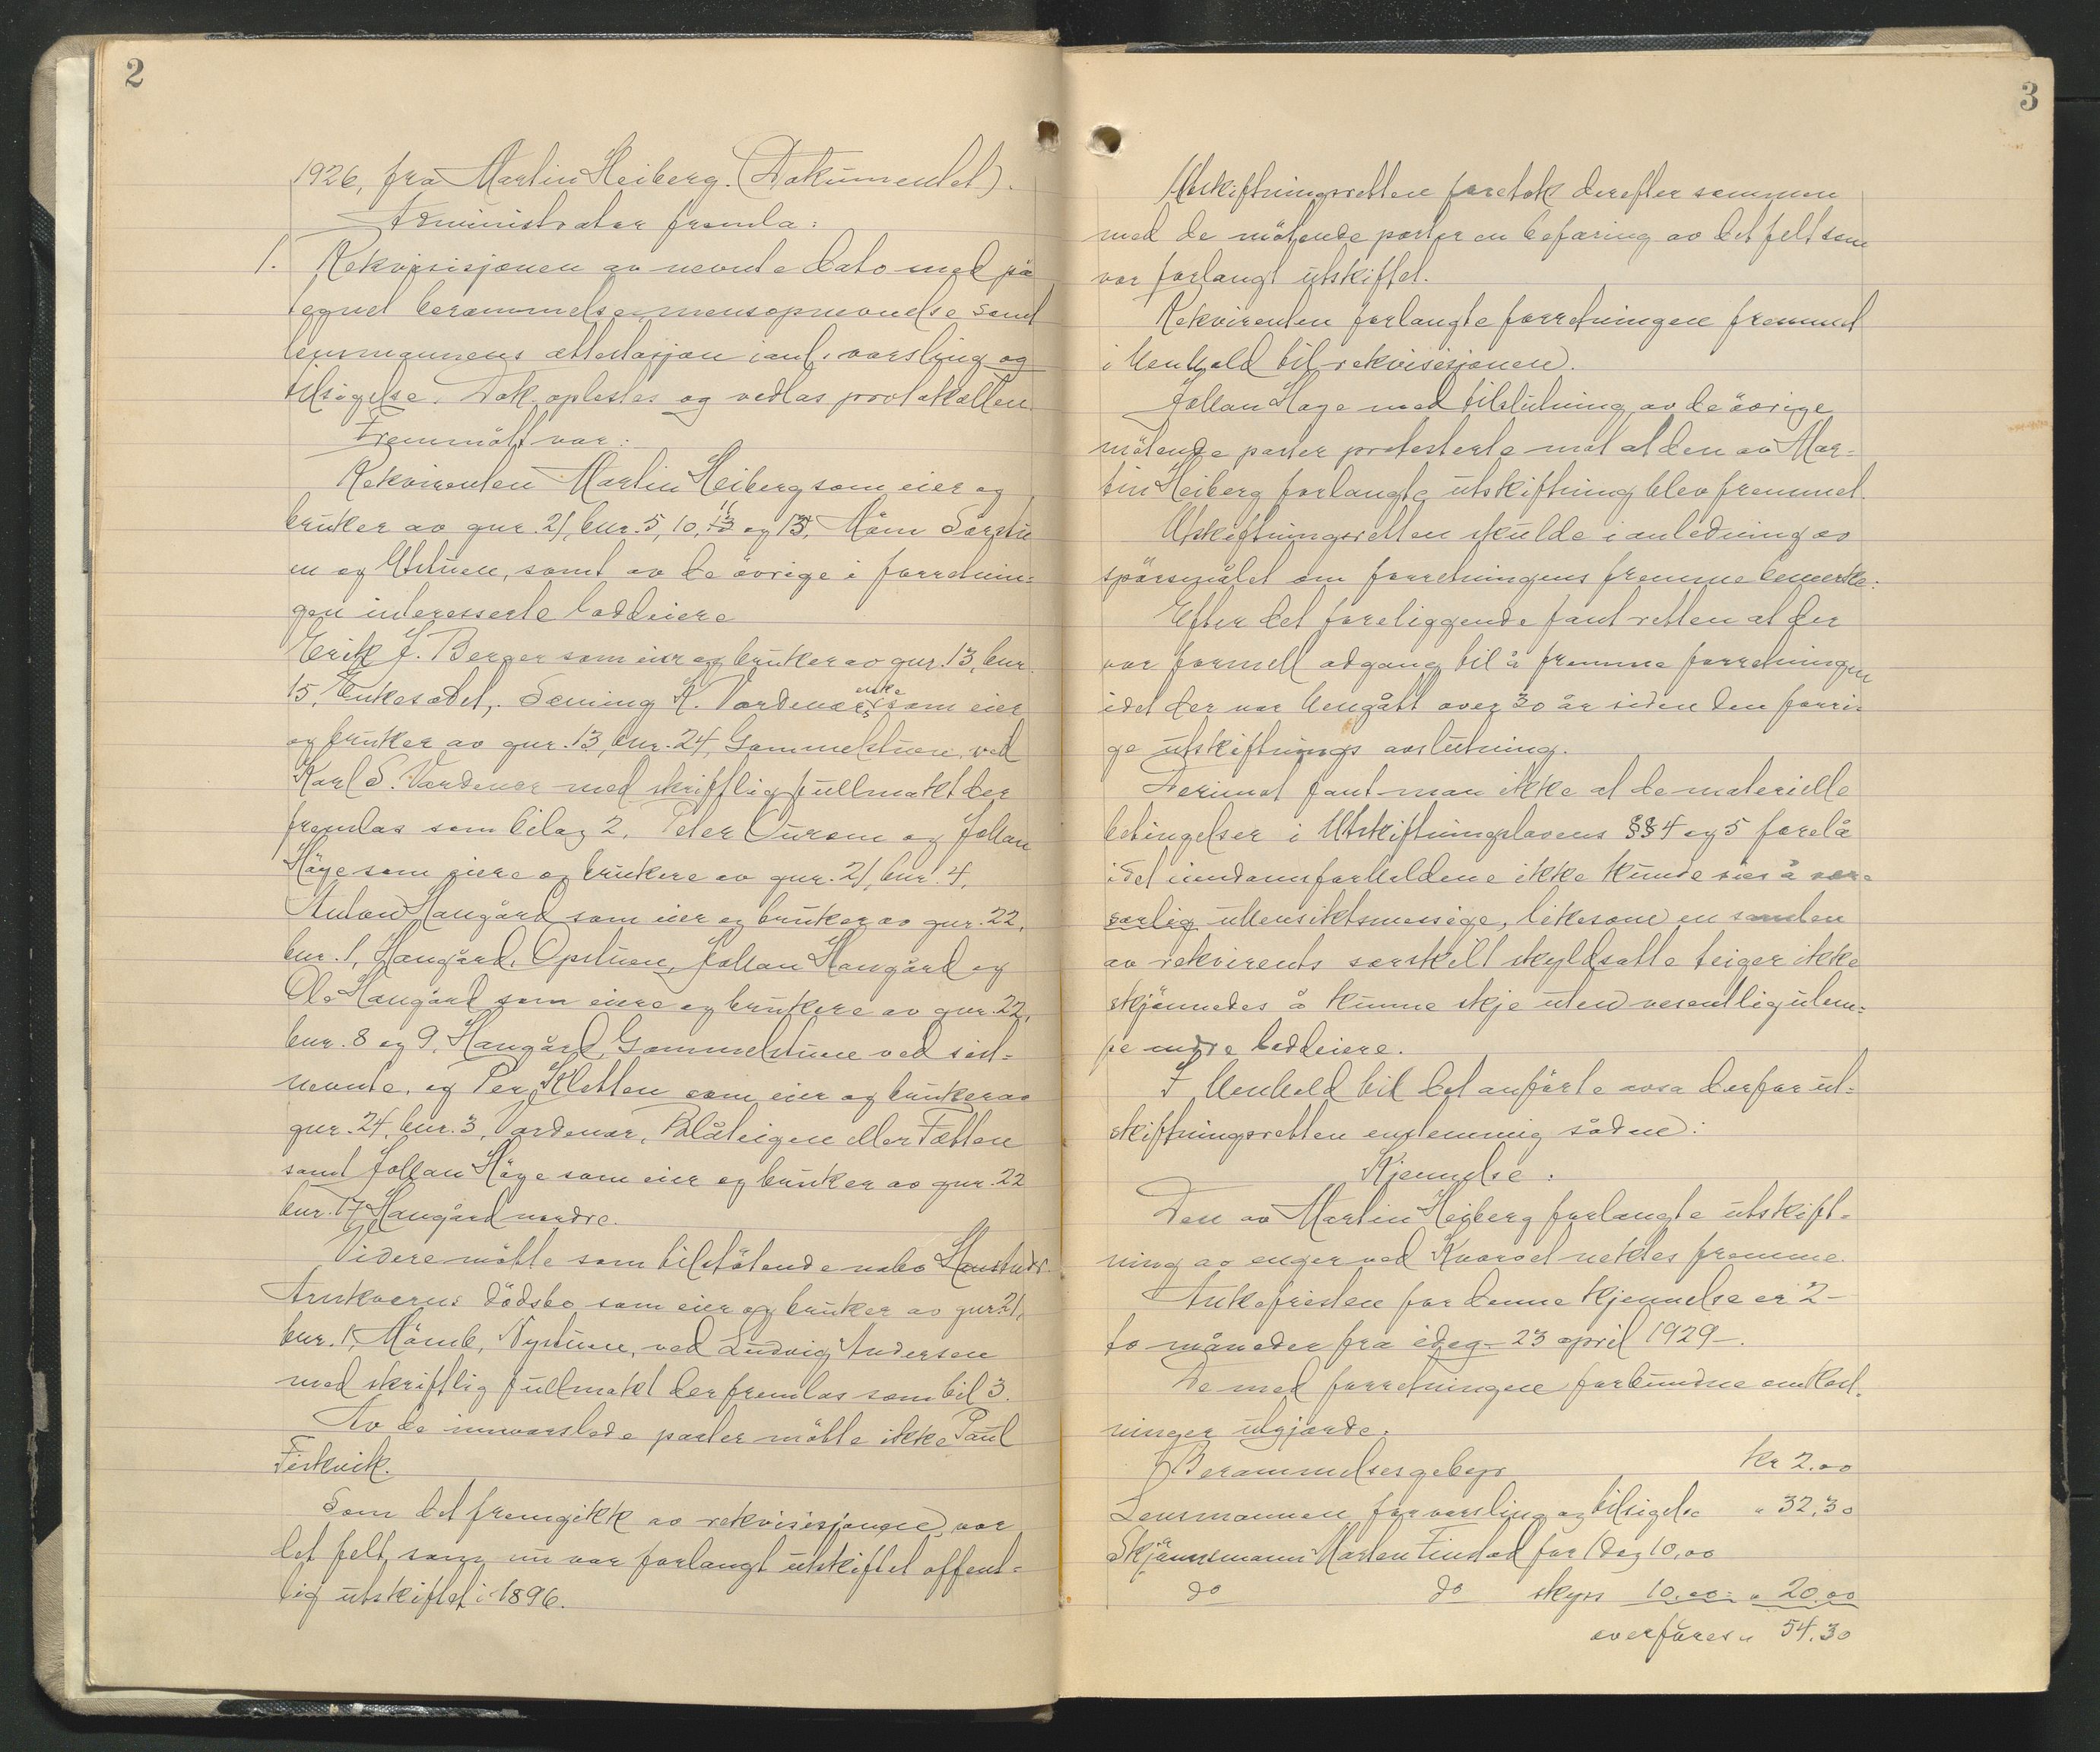 2
1926, fra Martin Heiberg. (Dokumentet).
Administrator fremla:
1. Rekvisisjonen av nevnte dato med på
tegnet berammelse, mensopnevnelse samt
lensmannens attestasjon ianl. varsling og
tilsigelse. Dok. oplestes og vedlas protokollen
Fremmött var:
Rekvirenten Martin Heiberg som eier og
bruker av gnr. 21, bnr. 5, 10, 11 og 13, Mäm Sørstu
en og Utstuen, samt av de övrige i forretnin=
gen interesserte loddeiere
Erik J. Berger som eier og bruker av gnr. 13, bnr.
15, Enkesædet, Sæming K. Vardenærs enke som eier
og bruker av gnr. 13, bnr. 24, Gammelstuen, ved
Karl S. Vardenær med skriftlig fullmakt der
fremlas som bilag 2, Peter Ourom og Johan
Häge som eiere og brukere av gnr. 21, bnr. 4,
Anton Haugård som eier og bruker av gnr. 22,
bnr. 1, Haugård, Opstuen, Johan Haugård og
Ola Haugård som eiere og brukere av gnr. 22,
bnr. 8 og 9, Haugård, Gammelstuen ved sist=
nevnte, og Per Kletten som eier og bruker av
gnr. 24, bnr. 3, Vardenær, Blåteigen eller Fætten
samt Johan Häge som eier og bruker av gnr. 22
bnr. 17 Haugård nordre.
Videre mötte som tilstötende nabo
dödsbo som eier og bruker av gnr 21,
bnr. 1, Nystuen, ved Ludvig Andersen
med skriftlig fullmakt der fremlas som bil 3.
Av de innvarslede parter mötte ikke Paul
Fiskvik.
Som det fremgikk av rekvisisjonen, var
det felt som nu var forlangt utskiftet offent=
lig utskiftet i 1896.
3
Utskiftningsretten foretok derefter sammen
med de mötende parter en befaring av det felt som
var forlangt utskiftet.
Rekvirenten forlangte forretningen fremmet
i henhold til rekvisisjonen.
Johan Hage med tilslutning av de övrige
mötende parter protesterte mot at den av Mar=
tin Heiberg forlangte utskiftning blev fremmet.
Utskiftningsretten skulde i anledning av
spörsmålet om forretningens fremme bemerke:
Efter det foreliggende fant retten at der
var formell adgang til å fremme forretningen
idet der var hengått over 30 år siden den forri=
ge utskiftnings avslutning.
Derimot fant man ikke at de materielle
betingelser i Utskiftningslovens §§ 4 og 5 forelå
idet eiendomsforholdene ikke kunde sies å være
særlig uhensiktsmessige, likesom en samlen
av rekvirents særskilt skyldsatte teiger ikke
skjönnedes å kunne skje uten vesentlig ulem=
pe andre loddeiere.
I henhold til det anförte avsa derfor ut=
skiftningsretten enstemmig sådan:
Kjennelse:
Den av Martin Heiberg forlangte utskift=
ning av enger ved Kværvel nektes fremme.
Ankefristen for denne kjennelse er 2-
to måneder fra idag - 23 april 1929-.
De med forretningen forbundne omkost=
ninger utgjorde:
Berammelsesgebyr kr 2.00
Lensmannen for varsling og tilsigelse " 32.30
Skjönnsmann Morten Finstad for 1 dag 10,00
do do skyss 10.00 = " 20.00
overföres " 54.30